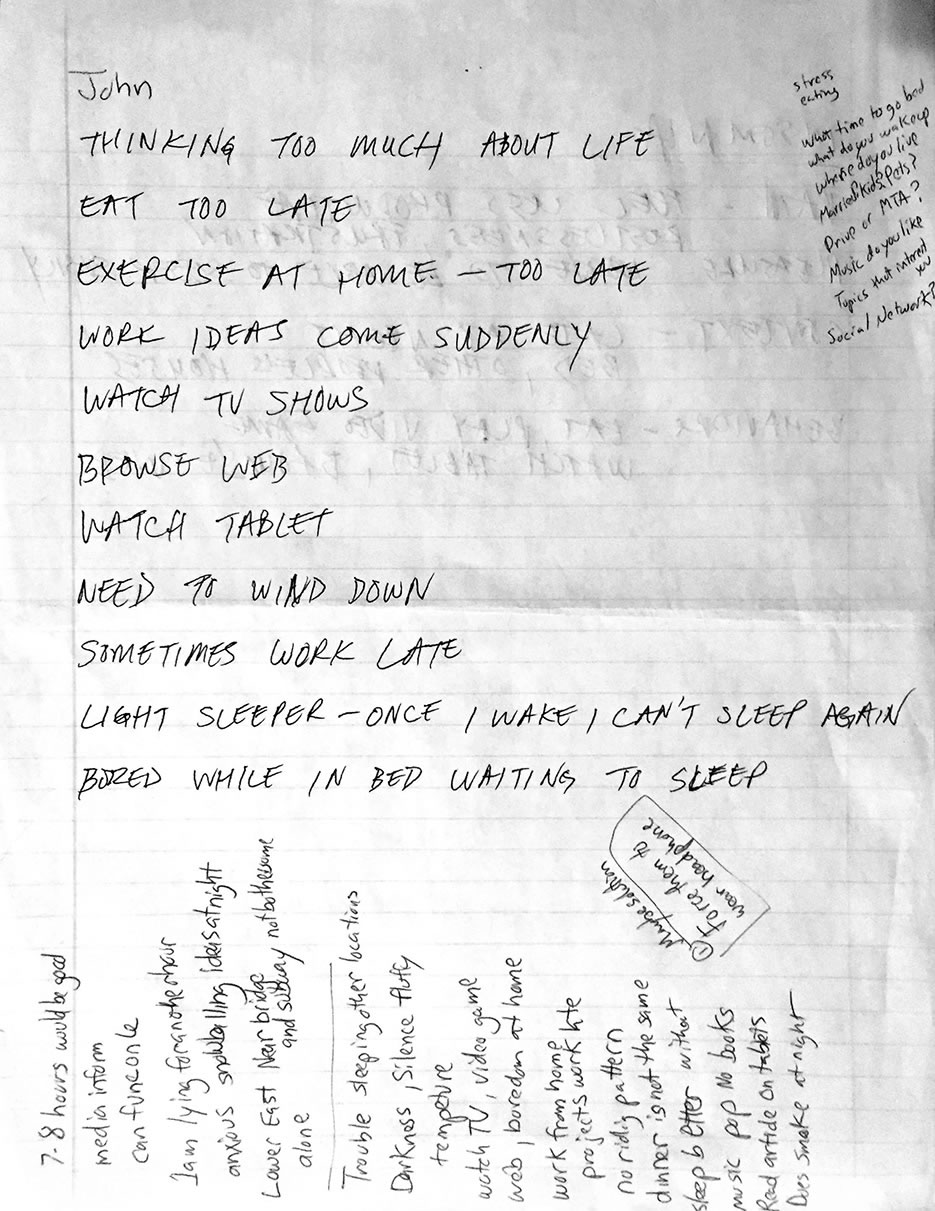 John
THINKING TOO MUCH ABOUT LIFE
EAT TOO LATE
EXERCISE AT HOME - TOO LATE
WORK IDEAS COME SUDDENLY
WATCH TV SHOWS
BROWSE WEB
WATCH TABLET
NEED TO WIND DOWN
SOMETIMES WORK LATE
LIGHT SLEEPER - ONCE I WAKE, I CAN'T SLEEP AGAIN
BORED WHILE IN BED WAITING TO SLEEP
stress
eating
what time to go bed
what do you wakeup
where do you live
Married? Kids, Pets?
Drive or MTA?
Music do you like
Topics that interest
you
Social Network?
Maybe solution
① Force them to
wear headphone
7-8 hours would be good
media inform
can
I am lying for another hour
anxious snowballing ideas at night
Lower East Near bridge
and subway not bothersome
alone
Trouble sleeping other locations
Darkness, Silence fluffy
tempeture
watch TV, video game
web, boredom at home
work from home
projects work late
no riding pattern
dinner is not the same
sleep better without
music pop No books
Read article on tablets
Does Smoke at night